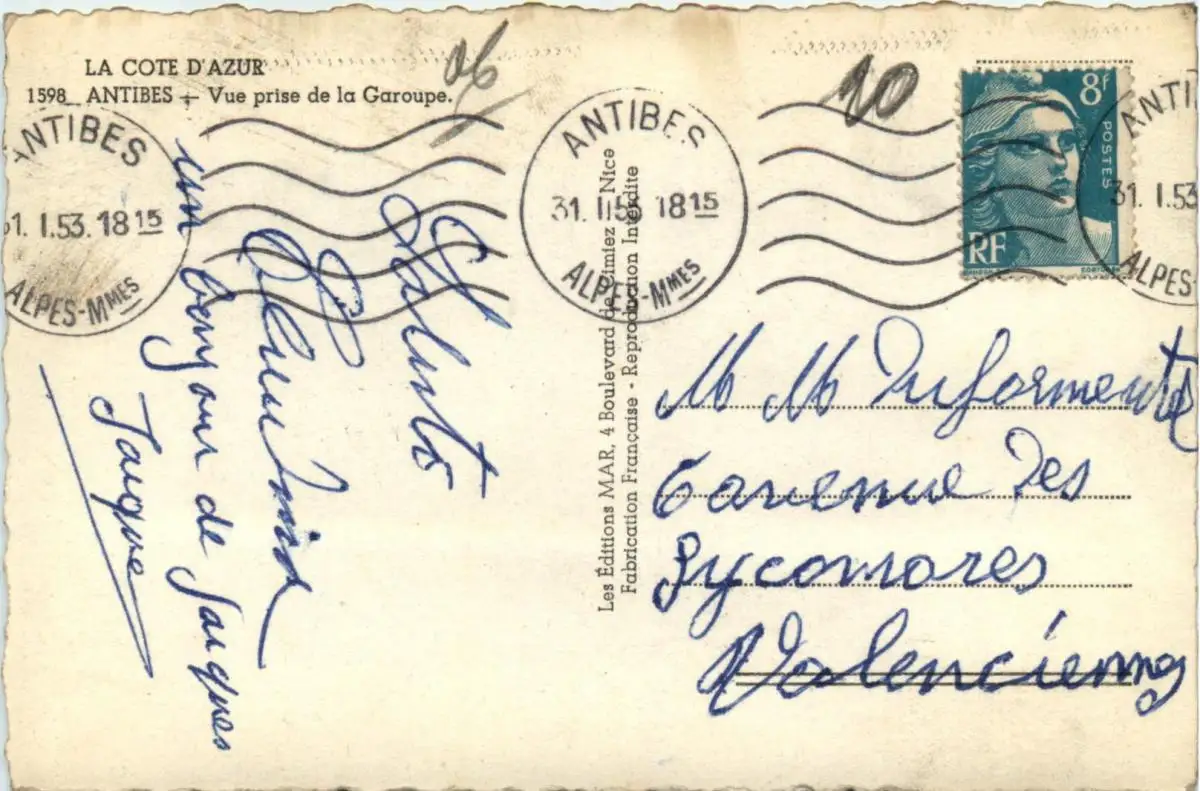 LA COTE D'AZUR
1598 ANTIBES — Vue prise de la Garoupe.
06
10
ANTIBES
31. I. 53. 18 15
ALPES-Mmes
ANTIBES
31. I. 53 18 15
ALPES-Mmes
ANTI
31. I. 53
ALPES
8F
POSTES
RF
Les Éditions MAR, 4 Boulevard de Cimiez, Nice
Fabrication Française - Reproduction Interdite
un bonjour de Jacques
M M
avenue Des
Sycomores
Valenciennes